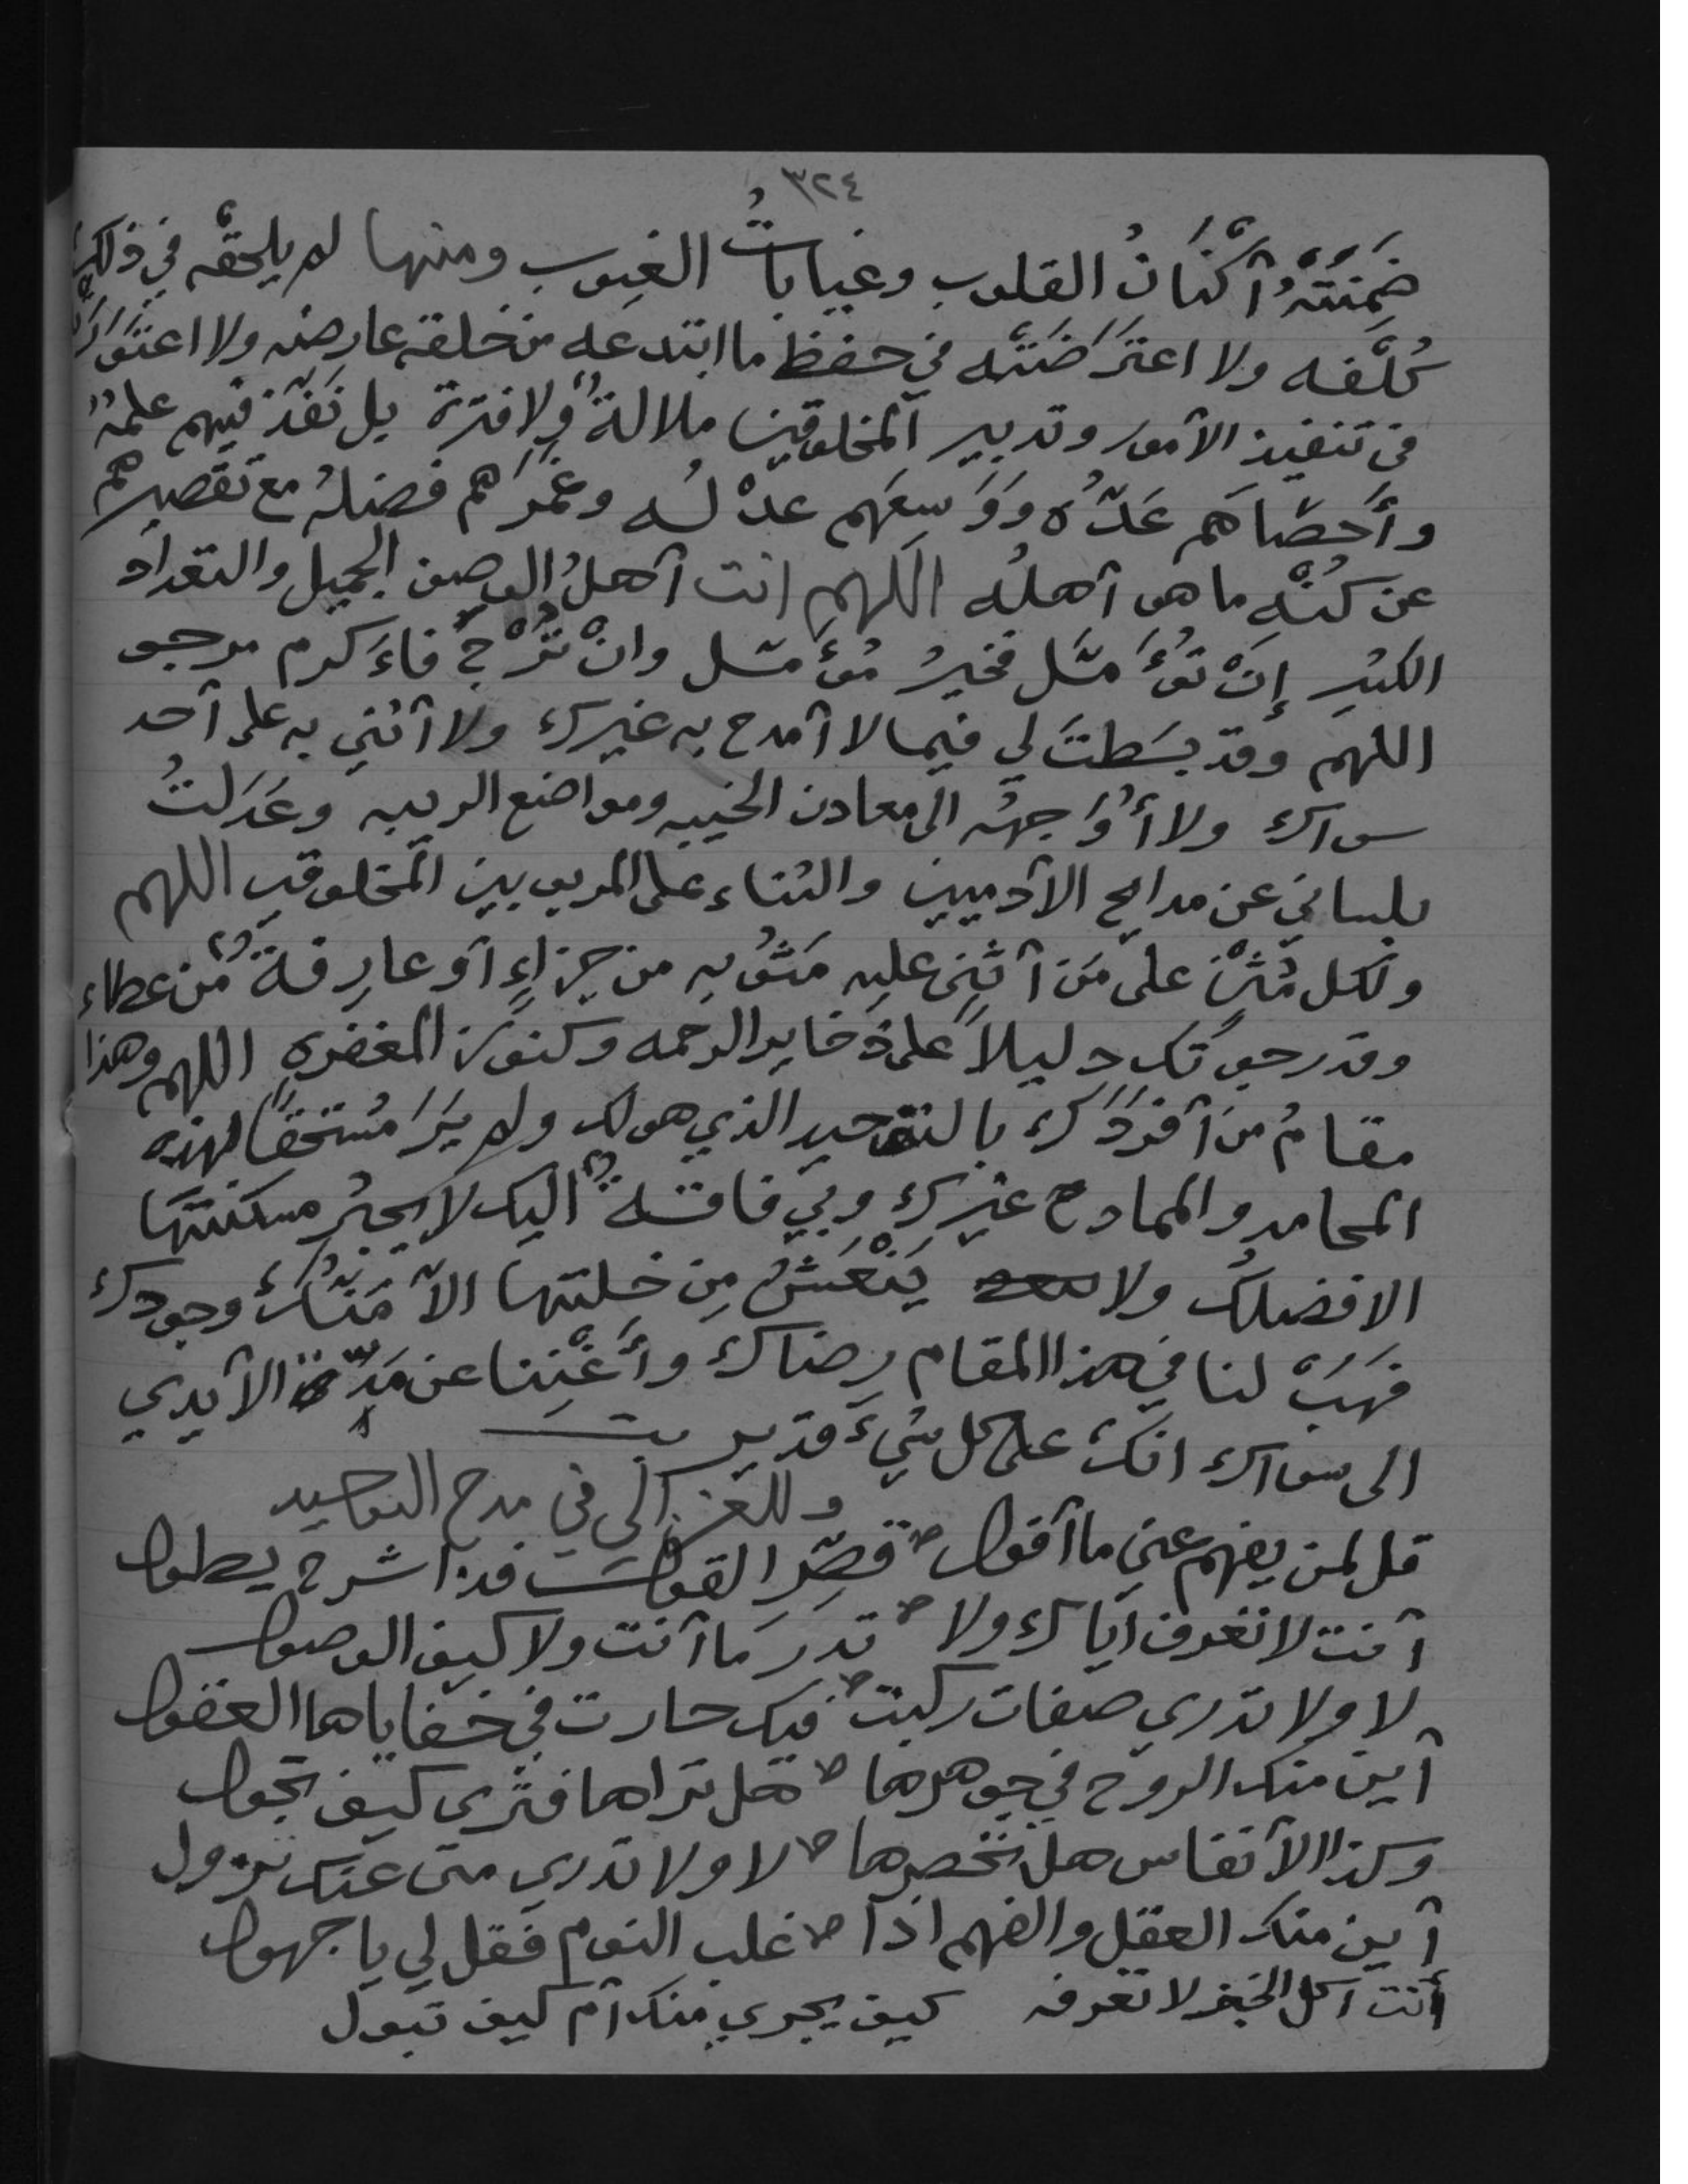 ٣٢٤
ضَمِنَتْهُ أكنانُ القلوب وغياباتُ الغيوب ومنها لم يلحقْه في ذلك
كُلفه ولا اعترَضَتْه في حفظ ما ابتدعه من خلقه عارضه ولا اعتَوَرَتْه
في تنفيذ الأمور وتدبير المخلوقين ملالةٌ ولا فترة بل نَفَذَ فيهم علمُه
وأَحصَاهم عَدُّه وَوَسِعَهم عدْلُه وغمَرَاهم فضلُه مع تقصيرهم
عن كُنْهِ ما هو أهلُه اللهم انت أهلُ الوصف الجميل والتعداد
الكثير إِنْ تُؤَمَّل فخيرُ مُؤَمَّل وانْ تُرْجَ فاَكرم مرجو
اللهم وقد بسَطتَ لي فيما لا أمدح به غيرك ولا أثني به على أحد
سواك ولا أُوَاجهُه الى معادن الخيبه ومواضع الريبه وعَدَلتُ
بلساني عن مدايح الآدميين والثناء على المربوبين المخلوقين اللهم
ولكل مُثْنٍ على مَن أثنى عليه مَثُوبه من جزاءٍ أو عارِفةٌ من عطاء
وقد رجوتك دليلاً على ذخاير الرحمه وكنوز المغفره اللهم وهذا
مقامُ مَن أفردَك بالتوحيد الذي هو لك ولم يَرَ مُستحقاً لهذه
المحامد والممادح غيرك وبي فاقةٌ اليك لا يجبُر مسكنتها
الا فضلُك ولا يَنْعَشُ مِن خلتها الا مَنُّكَ وجودك
فهَبْ لنا في هذا المقام رضاك وأَغْنِنا عن مَدِّ الأيدي
الى سواك انكَ على كل شيءَ قدير تمت
وللغزالي في مدح التوحيد
قل لمن يفهم عني ما أقول قصِّر القولَ فذا شرح يطول
أنت لا تعرف اياك ولا تدرَ ما أنت ولا كيف الوصول
لا ولا تدري صفات ركبت فيك حارت في خفاياها العقول
أين منك الروح في جوهرها هل تراها فترى كيف تجول
وكذا الأنفاس هل تحصرها لا ولا تدري متى عنك تزول
أين منك العقل والفهم اذا غلب النوم فقل لي يا جهول
أنت أكل الخبز لا تعرفه كيف يجري منك أم كيف تبول